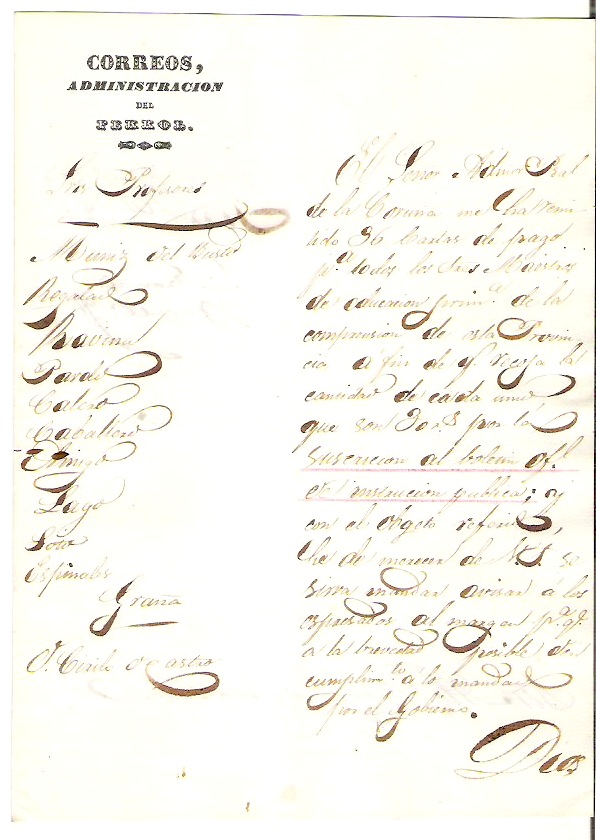 CORREOS,
ADMINISTRACION
DEL
FERROL.
Sres Profesores
Muñiz del Busto
Regalad
Raviña
Pardo
Calero
Caballero
Amigo
Lago
Soto
Espiñales
Graña
D. Cirilo Castro
El Señor Admor Pral
de la Coruña me ha remi
tido 36 cartas de pago
pª todos los Sres Maestros
de educacion primª de la
comprension de esta Provin
cia a fin de q. recoja la
cantidad de cada una
que son 30 rs por la
suscricion al boletin ofl.
de instrucion publica; y
con el obgeto referido,
he de merecer de V.S. se
sirva mandar avisar á los
espresados al margen pª qe
a la brevedad posible den
cumplimto á lo mandado
por el Gobierno.
Dios